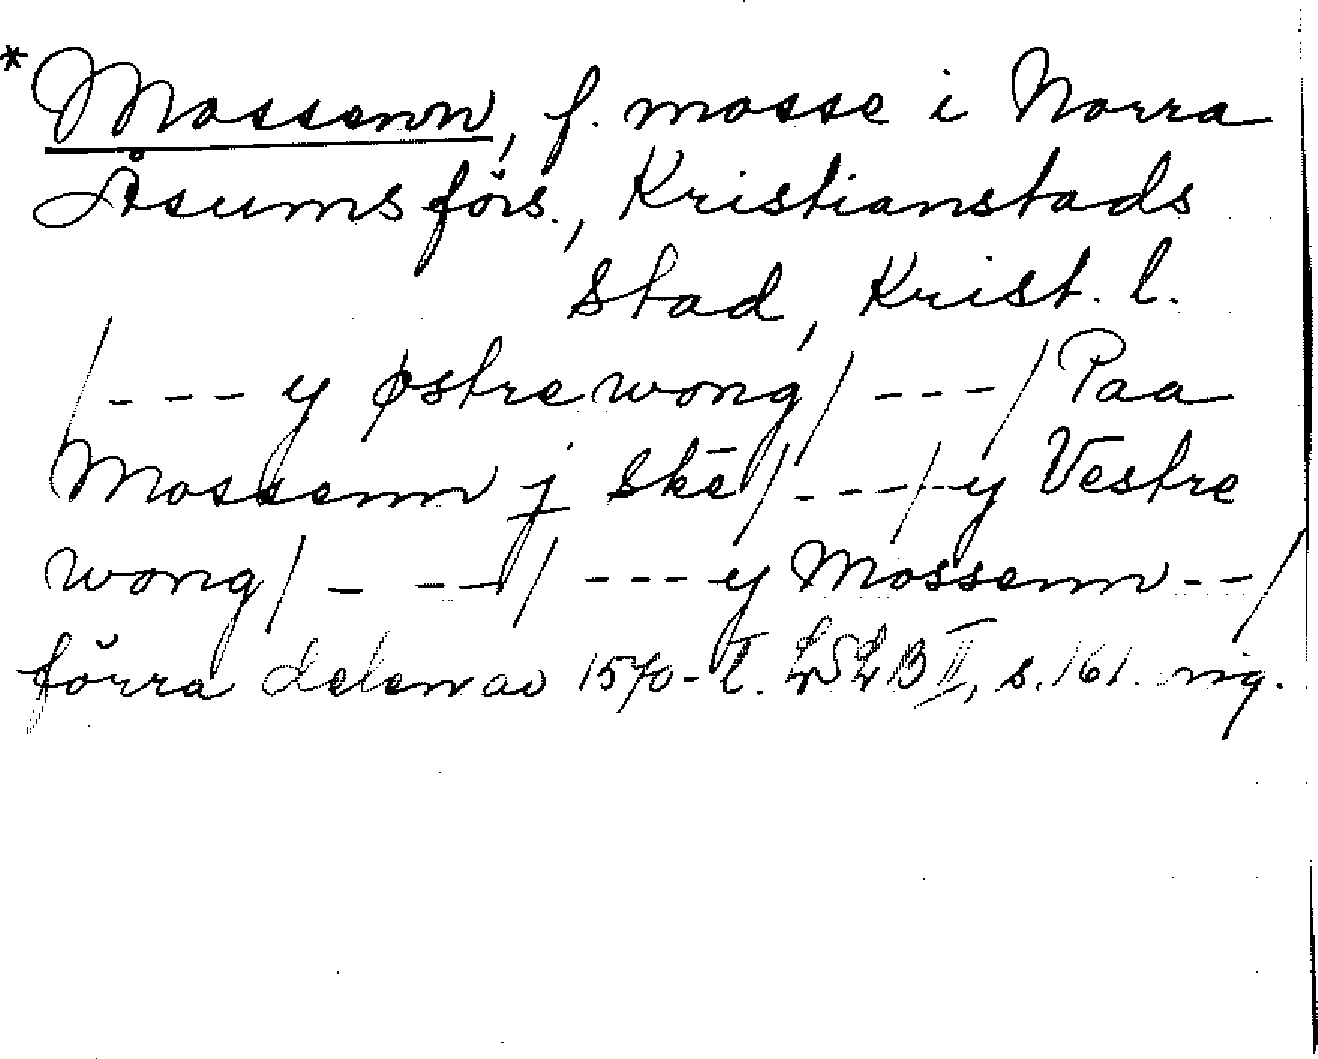 *Mossenn, f. mosse i Norra
Åsums förs., Kristianstads
stad, Krist. l.
/--- y østre wong/ ---/ Paa
Mossenn j skē/ ---/ y Vestre
wong/ ---/ --- y Mossenn --/
förra delen av 1570-t. LSLB II, s. 161. mg.